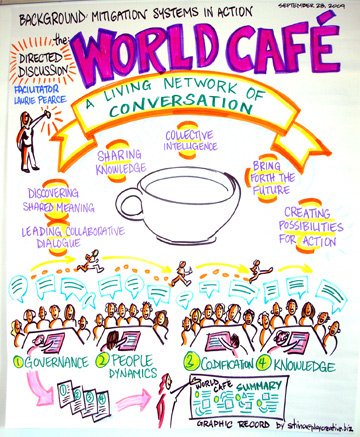 SEPTEMBER 28, 2009
BACKGROUND: MITIGATION SYSTEMS IN ACTION
the:
WORLD CAFÉ
DIRECTED
DISCUSSION
FACILITATOR
LAURIE PEARCE
A LIVING NETWORK OF
CONVERSATION
COLLECTIVE
INTELLIGENCE
SHARING
KNOWLEDGE
BRING
FORTH THE
FUTURE
DISCOVERING
SHARED MEANING
CREATING
POSSIBILITIES
FOR ACTION
LEADING COLLABORATIVE
DIALOGUE
1 GOVERNANCE
2 PEOPLE
DYNAMICS
3 CODIFICATION
4 KNOWLEDGE
1 2 3 4
WORLD CAFE SUMMARY
GRAPHIC RECORD by stina@playcreative.biz